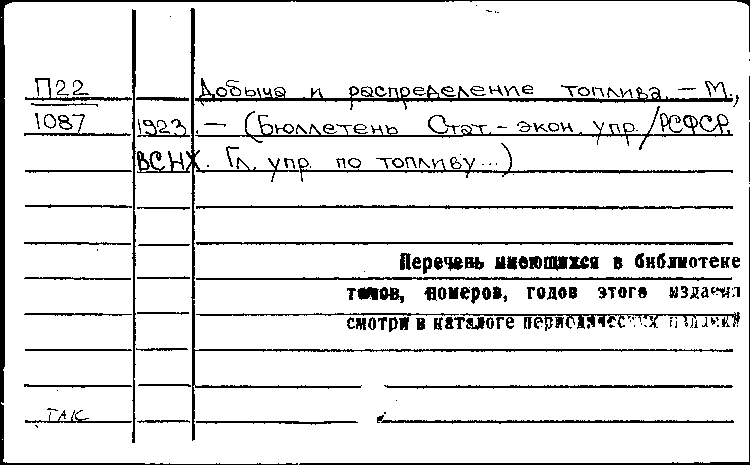 П22 Добыча и распределение топлива. – М.,
1087 1923. – (Бюллетень Стат.-экон. упр. / РСФСР.
ВСНХ. Гл. упр. по топливу...)
Перечень имеющихся в библиотеке
томов, номеров, годов этого издания
смотри в каталоге периодических изданий
ТАК